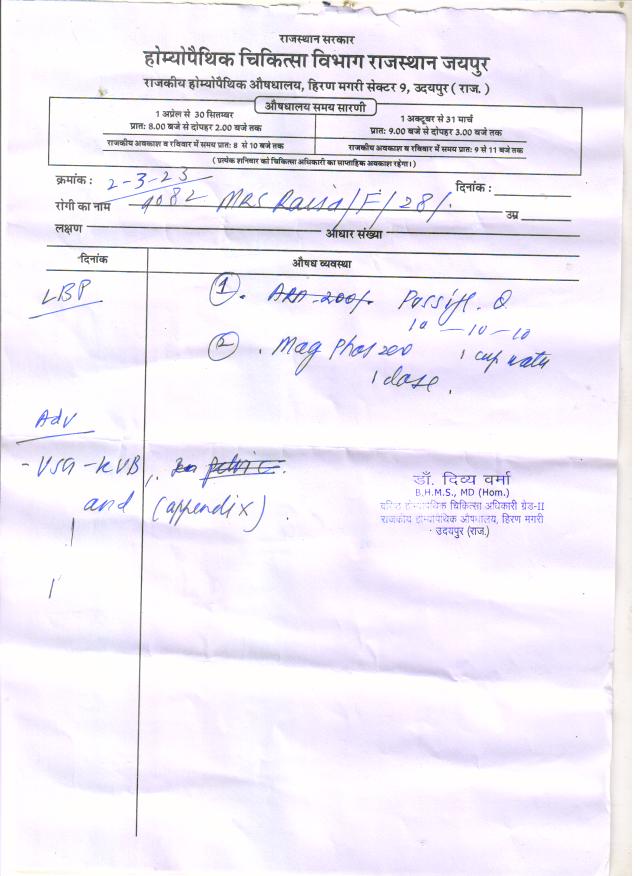 राजस्थान सरकार
होम्योपैथिक चिकित्सा विभाग राजस्थान जयपुर
राजकीय होम्योपैथिक औषधालय, हिरण मगरी सेक्टर 9, उदयपुर ( राज. )
औषधालय समय सारणी
1 अप्रेल से 30 सितम्बर
प्रात: 8.00 बजे से दोपहर 2.00 बजे तक
राजकीय अवकाश व रविवार में समय प्रात: 8 से 10 बजे तक
1 अक्टूबर से 31 मार्च
प्रात: 9.00 बजे से दोपहर 3.00 बजे तक
राजकीय अवकाश व रविवार में समय प्रात: 9 से 11 बजे तक
( प्रत्येक शनिवार को चिकित्सा अधिकारी का साप्ताहिक अवकाश रहेगा। )
क्रमांक : 2-3-23 दिनांक :
रांगी का नाम 4082 MRS Raisa/F/28/. उम्र
लक्षण आधार संख्या
दिनांक औषध व्यवस्था
LBP 1. Passifl. Q
10 - 10 - 10
2. Mag Phos 200 1 cup
1 dose.
Adv
- USG - KUB,
and (appendix)
डॉ. दिव्य वर्मा
B.H.M.S., MD (Hom.)
वरिष्ठ होम्योपैथिक चिकित्सा अधिकारी ग्रेड-II
राजकीय होम्योपैथिक औषधालय, हिरण मगरी
उदयपुर (राज.)